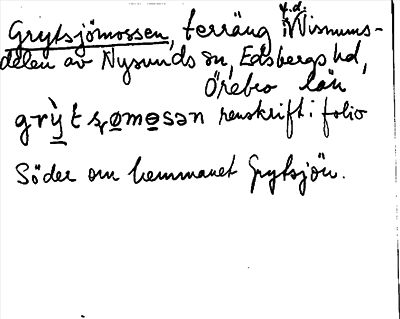 f.d.
Grytsjömossen, terräng i Wismums-
delen av Nysunds sn, Edsbergs hd,
Örebro län
renskrift i folio
Söder om hemmanet Grytsjön.